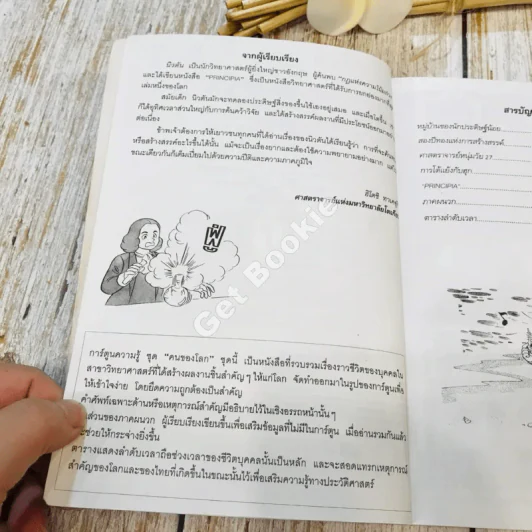 จากผู้เรียบเรียง
นิวตัน เป็นนักวิทยาศาสตร์ผู้ยิ่งใหญ่ชาวอังกฤษ ผู้ค้นพบ "กฎแห่งความโน้มถ่วง
และได้เขียนหนังสือ "PRINCIPIA" ซึ่งเป็นหนังสือวิทยาศาสตร์ที่ได้รับการยกย่อง
เล่มหนึ่งของโลก
สมัยเด็ก นิวตันมักจะทดลองประดิษฐ์สิ่งของขึ้นใช้เองอยู่เสมอ และเมื่อโตขึ้น
ก็ได้อุทิศเวลาส่วนใหญ่กับการค้นคว้าวิจัย และได้สร้างสรรค์ผลงานที่มีประโยชน์ออกมา
ต่อเนื่อง
ข้าพเจ้าต้องการให้เยาวชนทุกคนที่ได้อ่านเรื่องของนิวตันได้เรียนรู้ว่า การที่จะค้นพบ
หรือสร้างสรรค์อะไรขึ้นได้นั้น แม้จะเป็นเรื่องยากและต้องใช้ความพยายามอย่างมาก แต่ใน
ขณะเดียวกันก็เต็มเปี่ยมไปด้วยความปีติและความภาคภูมิใจ
ศาสตราจารย์แห่งมหาวิทยาลัยโตเกียว
การ์ตูนความรู้ ชุด "คนของโลก" ชุดนี้ เป็นหนังสือที่รวบรวมเรื่องราวชีวิตของบุคคลใน
สาขาวิทยาศาสตร์ที่ได้สร้างผลงานชิ้นสำคัญๆ ให้แก่โลก จัดทำออกมาในรูปของการ์ตูนเพื่อ
ให้เข้าใจง่าย โดยยึดความถูกต้องเป็นสำคัญ
คำศัพท์เฉพาะด้านหรือเหตุการณ์สำคัญมีอธิบายไว้ในเชิงอรรถหน้านั้นๆ
ส่วนของภาคผนวก ผู้เรียบเรียงเขียนขึ้นเพื่อเสริมข้อมูลที่ไม่มีในการ์ตูน เมื่ออ่านรวมกันแล้ว
จะช่วยให้กระจ่างยิ่งขึ้น
ตารางแสดงลำดับเวลาถือช่วงเวลาของชีวิตบุคคลนั้นเป็นหลัก และจะสอดแทรกเหตุการณ์
สำคัญของโลกและของไทยที่เกิดขึ้นในขณะนั้นไว้เพื่อเสริมความรู้ทางประวัติศาสตร์
สารบัญ
หมู่บ้านของนักประดิษฐ์น้อย
สองปีทองแห่งการสร้างสรรค์
ศาสตราจารย์หนุ่มวัย 27
การโต้แย้งกับฮุก
"PRINCIPIA"
ภาคผนวก
ตารางลำดับเวลา
Get Bookie